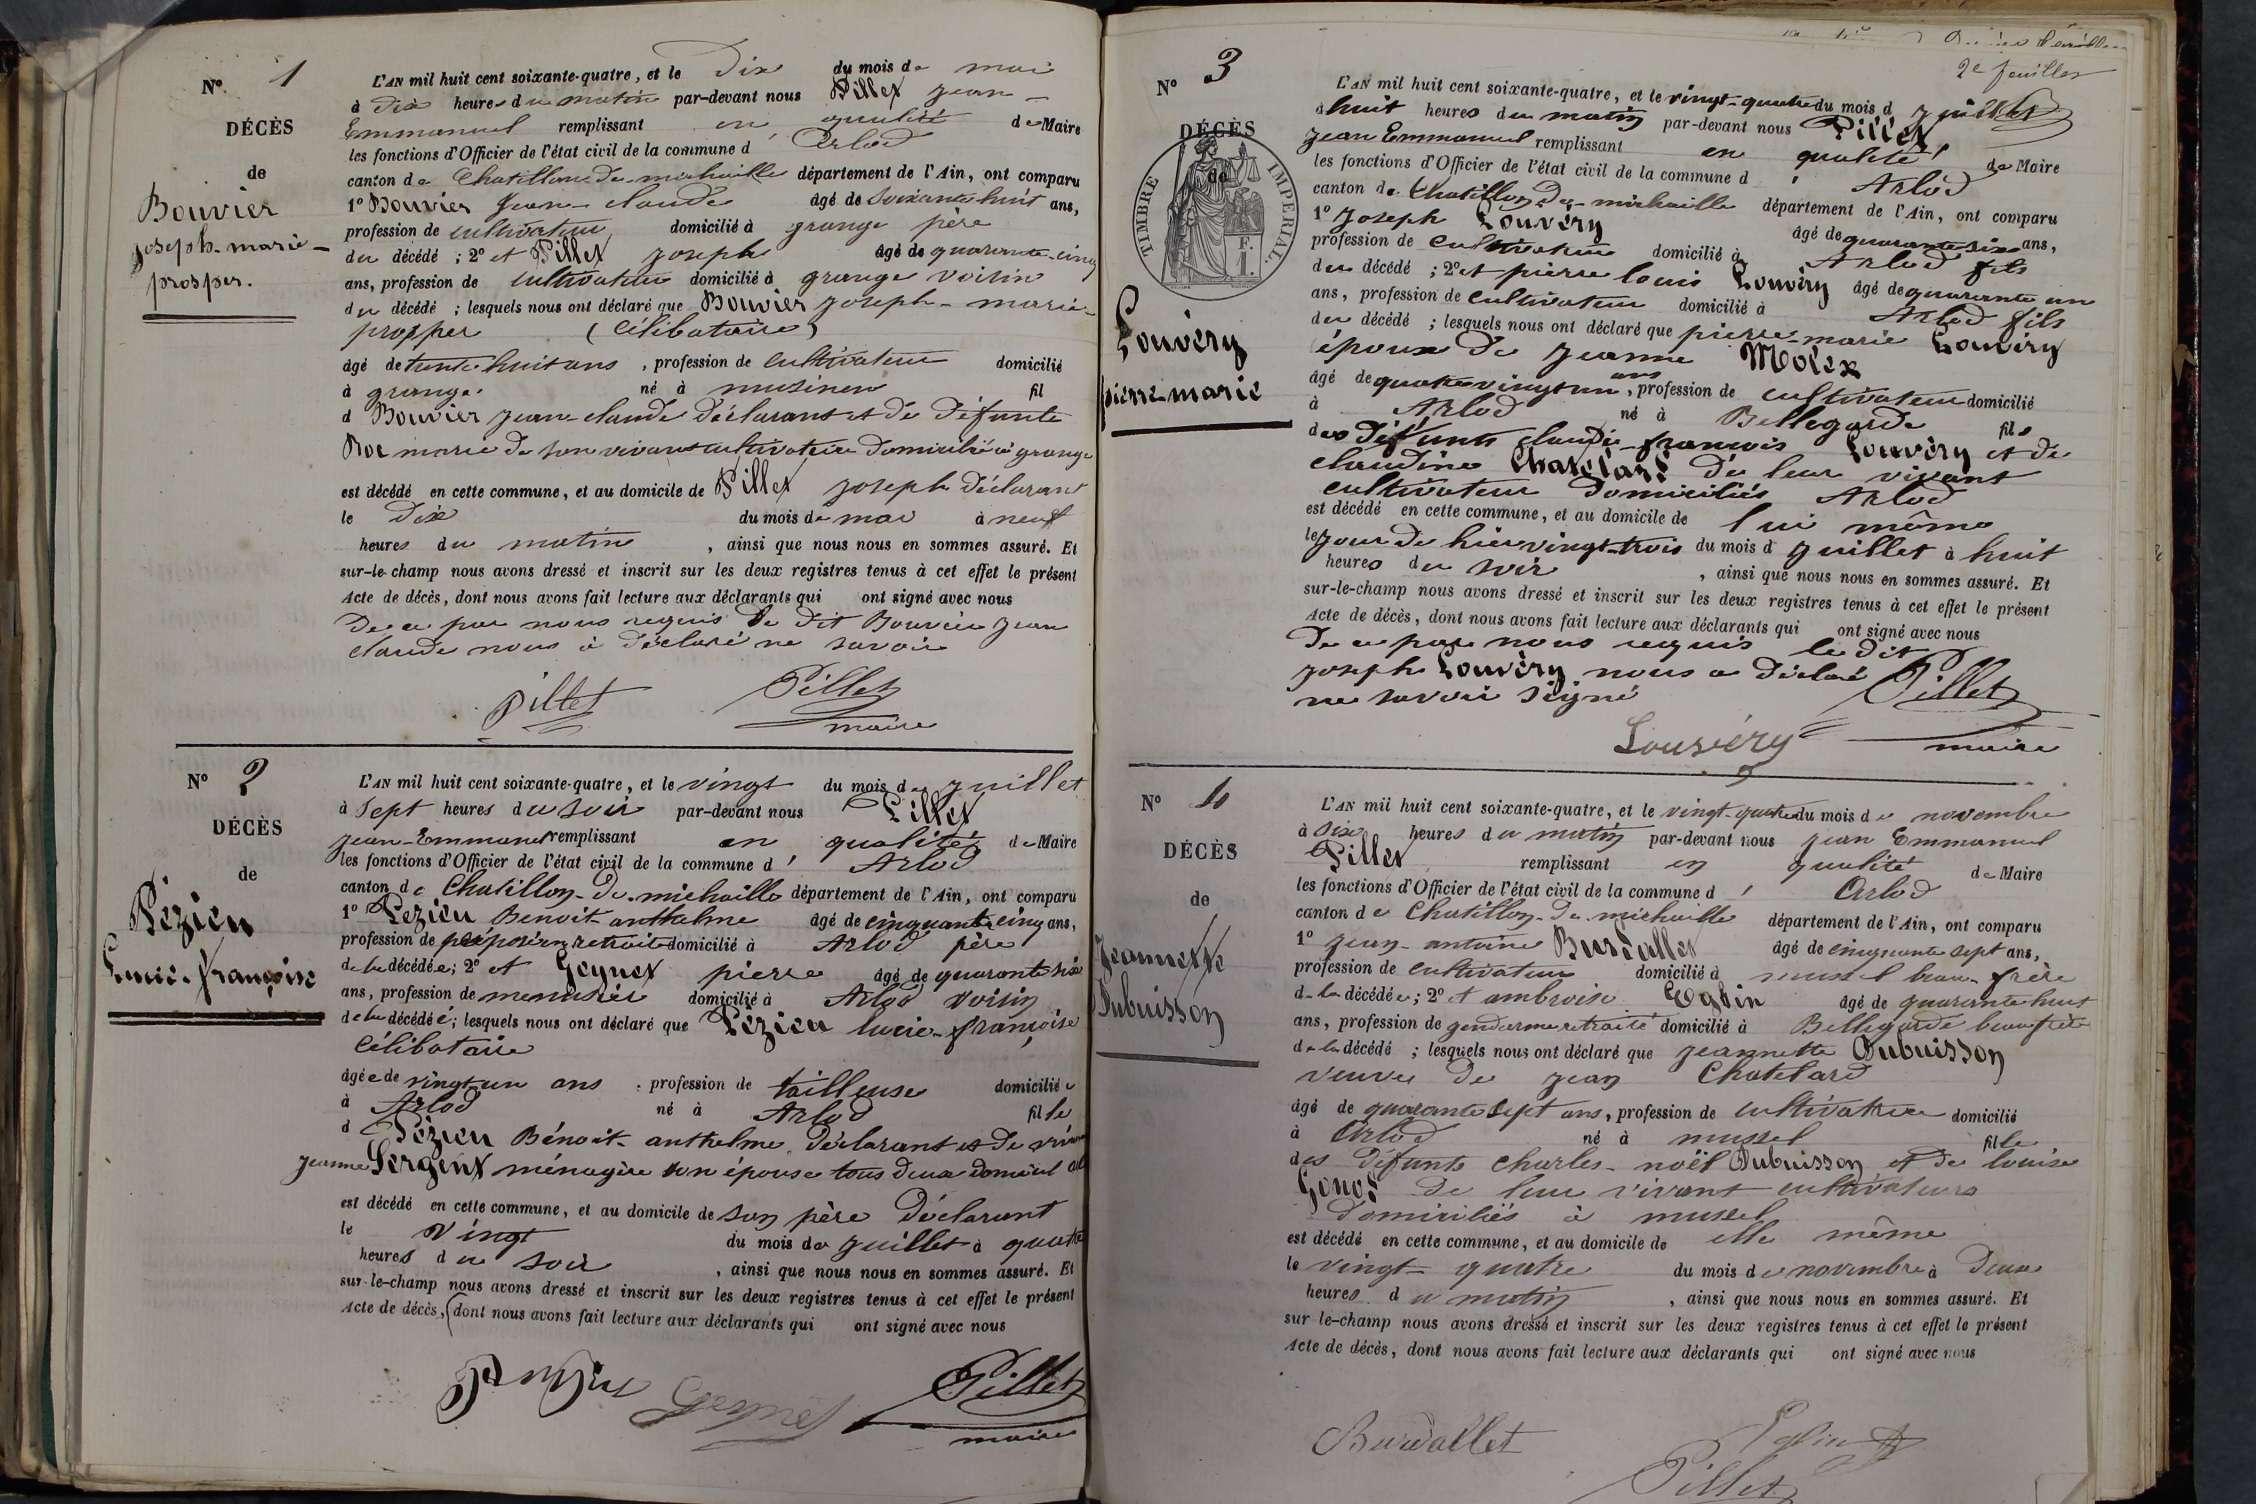 Nº 1
DÉCÈS
de
Bouvier
joseph-marie-
prosper.
L'AN mil huit cent soixante-quatre, et le Dix du mois de mai
à dix heures du matin par-devant nous Pillet jean
Emmanuel remplissant en qualité de Maire
les fonctions d'Officier de l'état civil de la commune d' Arlod
canton de Chatillon de michaille département de l'Ain, ont comparu
1º Bouvier jean-claude âgé de soixante huit ans,
profession de cultivateur domicilié à grange père
du décédé ; 2º et Pillet joseph âgé de quarante-cinq
ans, profession de cultivateur domicilié à grange voisin
du décédé ; lesquels nous ont déclaré que Bouvier joseph-marie-
prosper (célibataire)
âgé de trente huit ans, profession de cultivateur domicilié
à grange né à musinen fil
d Bouvier jean-claude déclarant et de défunte
Roc marie de son vivant cultivatrice domicilié à grange
est décédé en cette commune, et au domicile de Pillet joseph déclarant
le dix du mois de mai à neuf
heures du matin, ainsi que nous nous en sommes assuré. Et
sur-le-champ nous avons dressé et inscrit sur les deux registres tenus à cet effet le présent
Acte de décès, dont nous avons fait lecture aux déclarants qui ont signé avec nous
De ce par nous requis le dit Bouvier jean
claude nous a déclaré ne savoir
Pillet Pillet
maire
Nº 2
DÉCÈS
de
Pézieu
Lucie-françoise
L'AN mil huit cent soixante-quatre, et le vingt du mois de juillet
à sept heures du soir par-devant nous Pillet
jean-Emmanuel remplissant en qualité de Maire
les fonctions d'Officier de l'état civil de la commune d' Arlod
canton de Chatillon-de-michaille département de l'Ain, ont comparu
1º Pezieu Benoit-anthelme âgé de cinquante cinq ans,
profession de préposé en retraite domicilié à Arlod père
de la décédée; 2º et Goynet pierre âgé de quarante six
ans, profession de menuisier domicilié à Arlod voisin
de la décédée; lesquels nous ont déclaré que Pézieu lucie-françoise
célibataire
âgée de vingt un ans, profession de tailleuse domicilié e
à Arlod né à Arlod fille
d Pézieu Bénoit-anthelme, déclarant et de
jeanne Sergent ménagère son épouse tous deux
est décédé en cette commune, et au domicile de son père déclarant
le vingt du mois de juillet à quatre
heures du soir, ainsi que nous nous en sommes assuré. Et
sur-le-champ nous avons dressé et inscrit sur les deux registres tenus à cet effet le présent
Acte de décès, (dont nous avons fait lecture aux déclarants qui ont signé avec nous
Pillet
maire
2e feuillet
Nº 3
DÉCÈS
de
TIMBRE IMPERIAL
F. I.
Louvéry
pierre-marie
L'AN mil huit cent soixante-quatre, et le vingt-quatre du mois d juillet
à huit heures du matin par-devant nous Pillet
jean Emmanuel remplissant en qualité de Maire
les fonctions d'Officier de l'état civil de la commune d' Arlod
canton de Chatillon-de-michaille département de l'Ain, ont comparu
1º joseph Louvéry âgé de quarante six ans,
profession de cultivateur domicilié à Arlod fils
du décédé ; 2º et pierre louis Louvéry âgé de quarante un
ans, profession de cultivateur domicilié à Arlod fils
du décédé ; lesquels nous ont déclaré que pierre-marie Louvéry
époux de jeanne Molex
âgé de quatre vingt un ans, profession de cultivateur domicilié
à Arlod né à Bellegarde fils
des défunts claude-françois Louvéry et de
claudine Chatelard de leur vivant
cultivateur domiciliés Arlod
est décédé en cette commune, et au domicile de lui même
le jour de hier vingt-trois du mois d juillet à huit
heures du soir, ainsi que nous nous en sommes assuré. Et
sur-le-champ nous avons dressé et inscrit sur les deux registres tenus à cet effet le présent
Acte de décès, dont nous avons fait lecture aux déclarants qui ont signé avec nous
De ce par nous requis le dit
joseph Louvéry nous a déclaré
ne savoir signé
Pillet
Louvéry maire
Nº 4
DÉCÈS
de
Jeannette
Dubuisson
L'AN mil huit cent soixante-quatre, et le vingt-quatre du mois de novembre
à dix heures du matin par-devant nous jean Emmanuel
Pillet remplissant en qualité de Maire
les fonctions d'Officier de l'état civil de la commune d' Arlod
canton de Chatillon-de-michaille département de l'Ain, ont comparu
1º jean-antoine Burdallet âgé de cinquante sept ans,
profession de cultivateur domicilié à mussel beau-frère
de la décédée; 2º et ambroise Eglin âgé de quarante huit
ans, profession de gendarme retraité domicilié à Bellegarde beau frère
de la décédé ; lesquels nous ont déclaré que jeannette Dubuisson
veuve de jean Chatelard
âgé de quarante sept ans, profession de cultivatrice domicilié
à Arlod né à mussel fille
des défunts charles-noël Dubuisson et de louise
Gonod de leur vivant cultivateurs
domiciliés à mussel
est décédé en cette commune, et au domicile de elle même
le vingt-quatre du mois de novembre à deux
heures du matin, ainsi que nous nous en sommes assuré. Et
sur le-champ nous avons dressé et inscrit sur les deux registres tenus à cet effet le présent
Acte de décès, dont nous avons fait lecture aux déclarants qui ont signé avec nous
Burdallet Eglin
Pillet